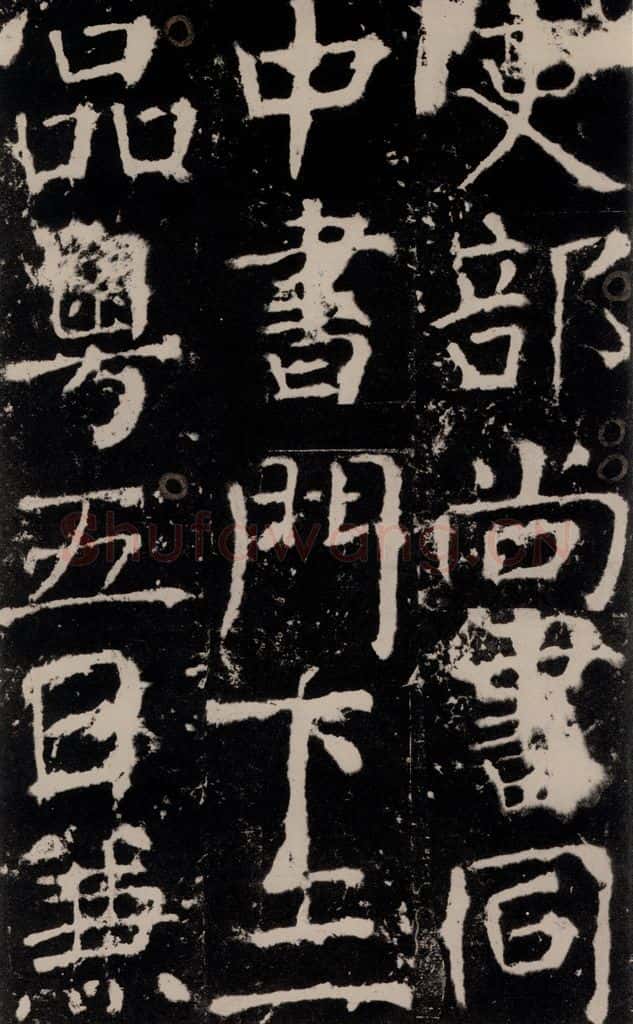 吏部尚書同
中書門下三
品粵五日兼
Shufawang.CN